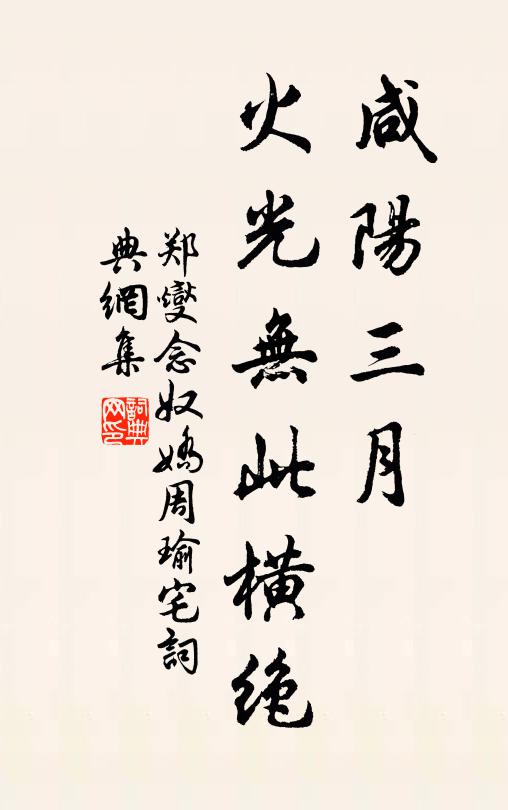 咸陽三月
火光無此橫絶
郑燮念奴嬌周瑜宅詞
典網集
詞典
网印